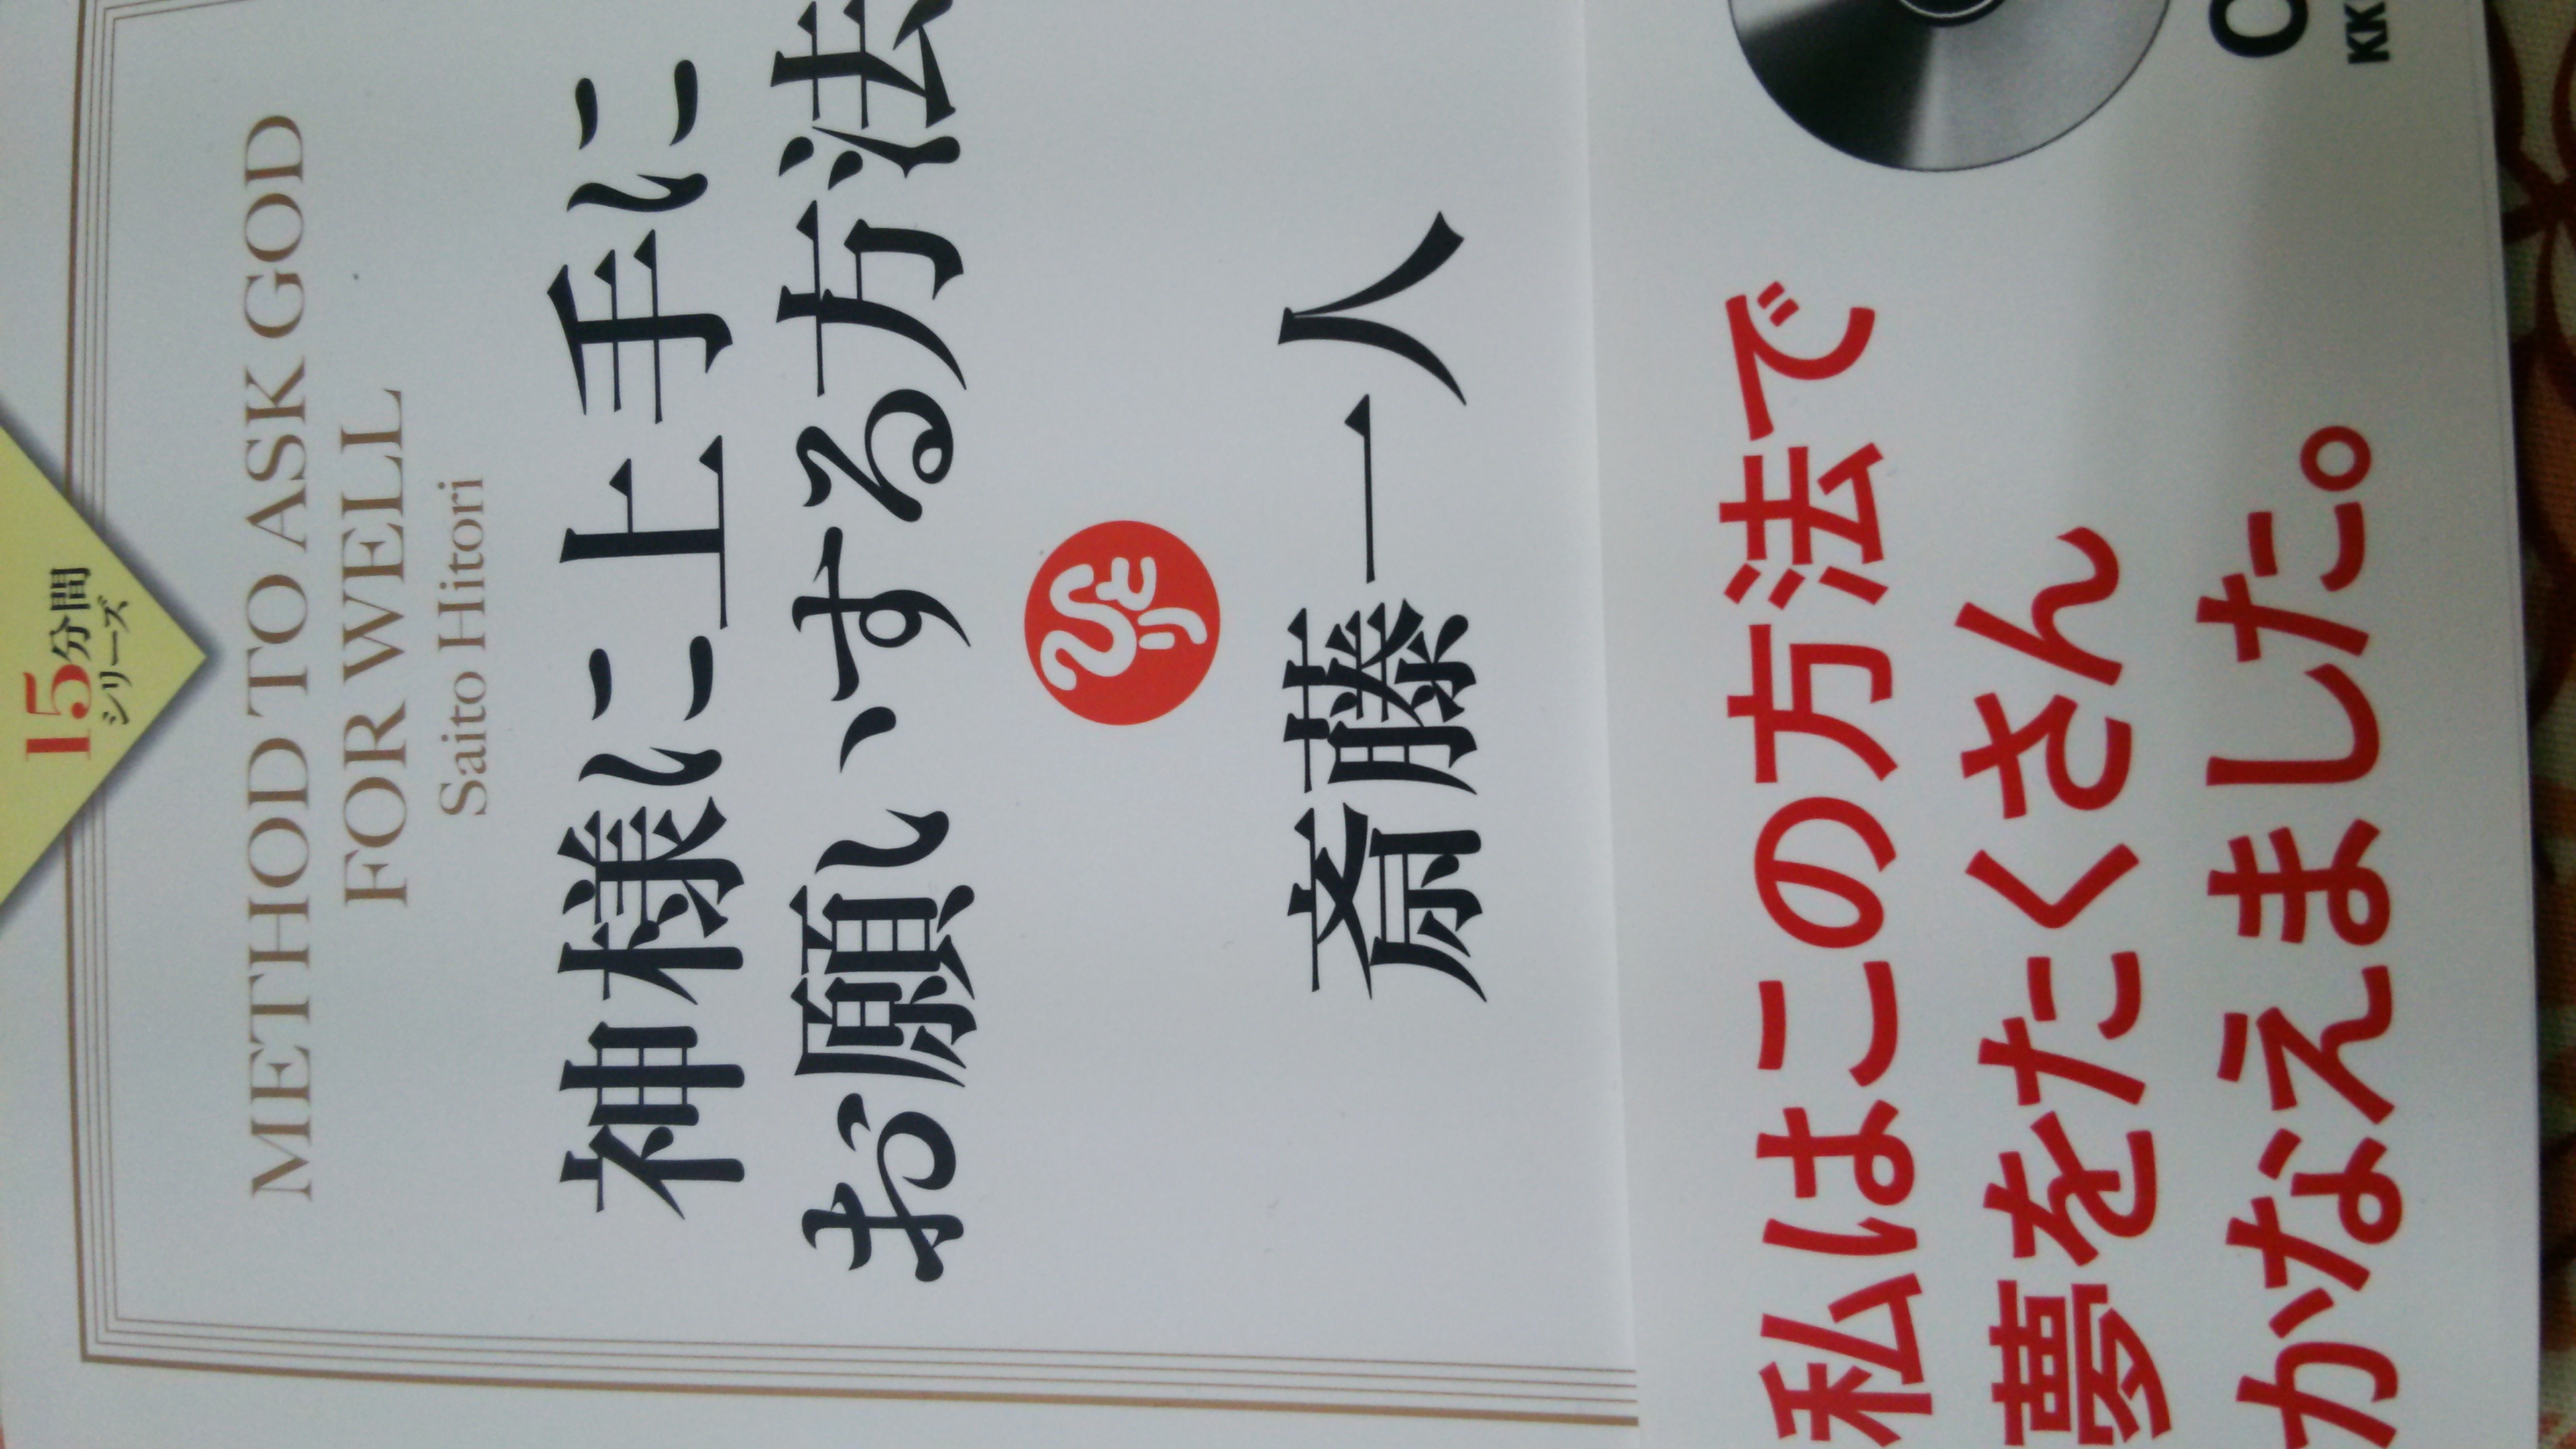 15分間
シリーズ
METHOD TO ASK GOD
FOR WELL
Saito Hitori
神様に上手に
お願いする方法
ひとり
斎藤一人
私はこの方法で
夢をたくさん
かなえました。
KK